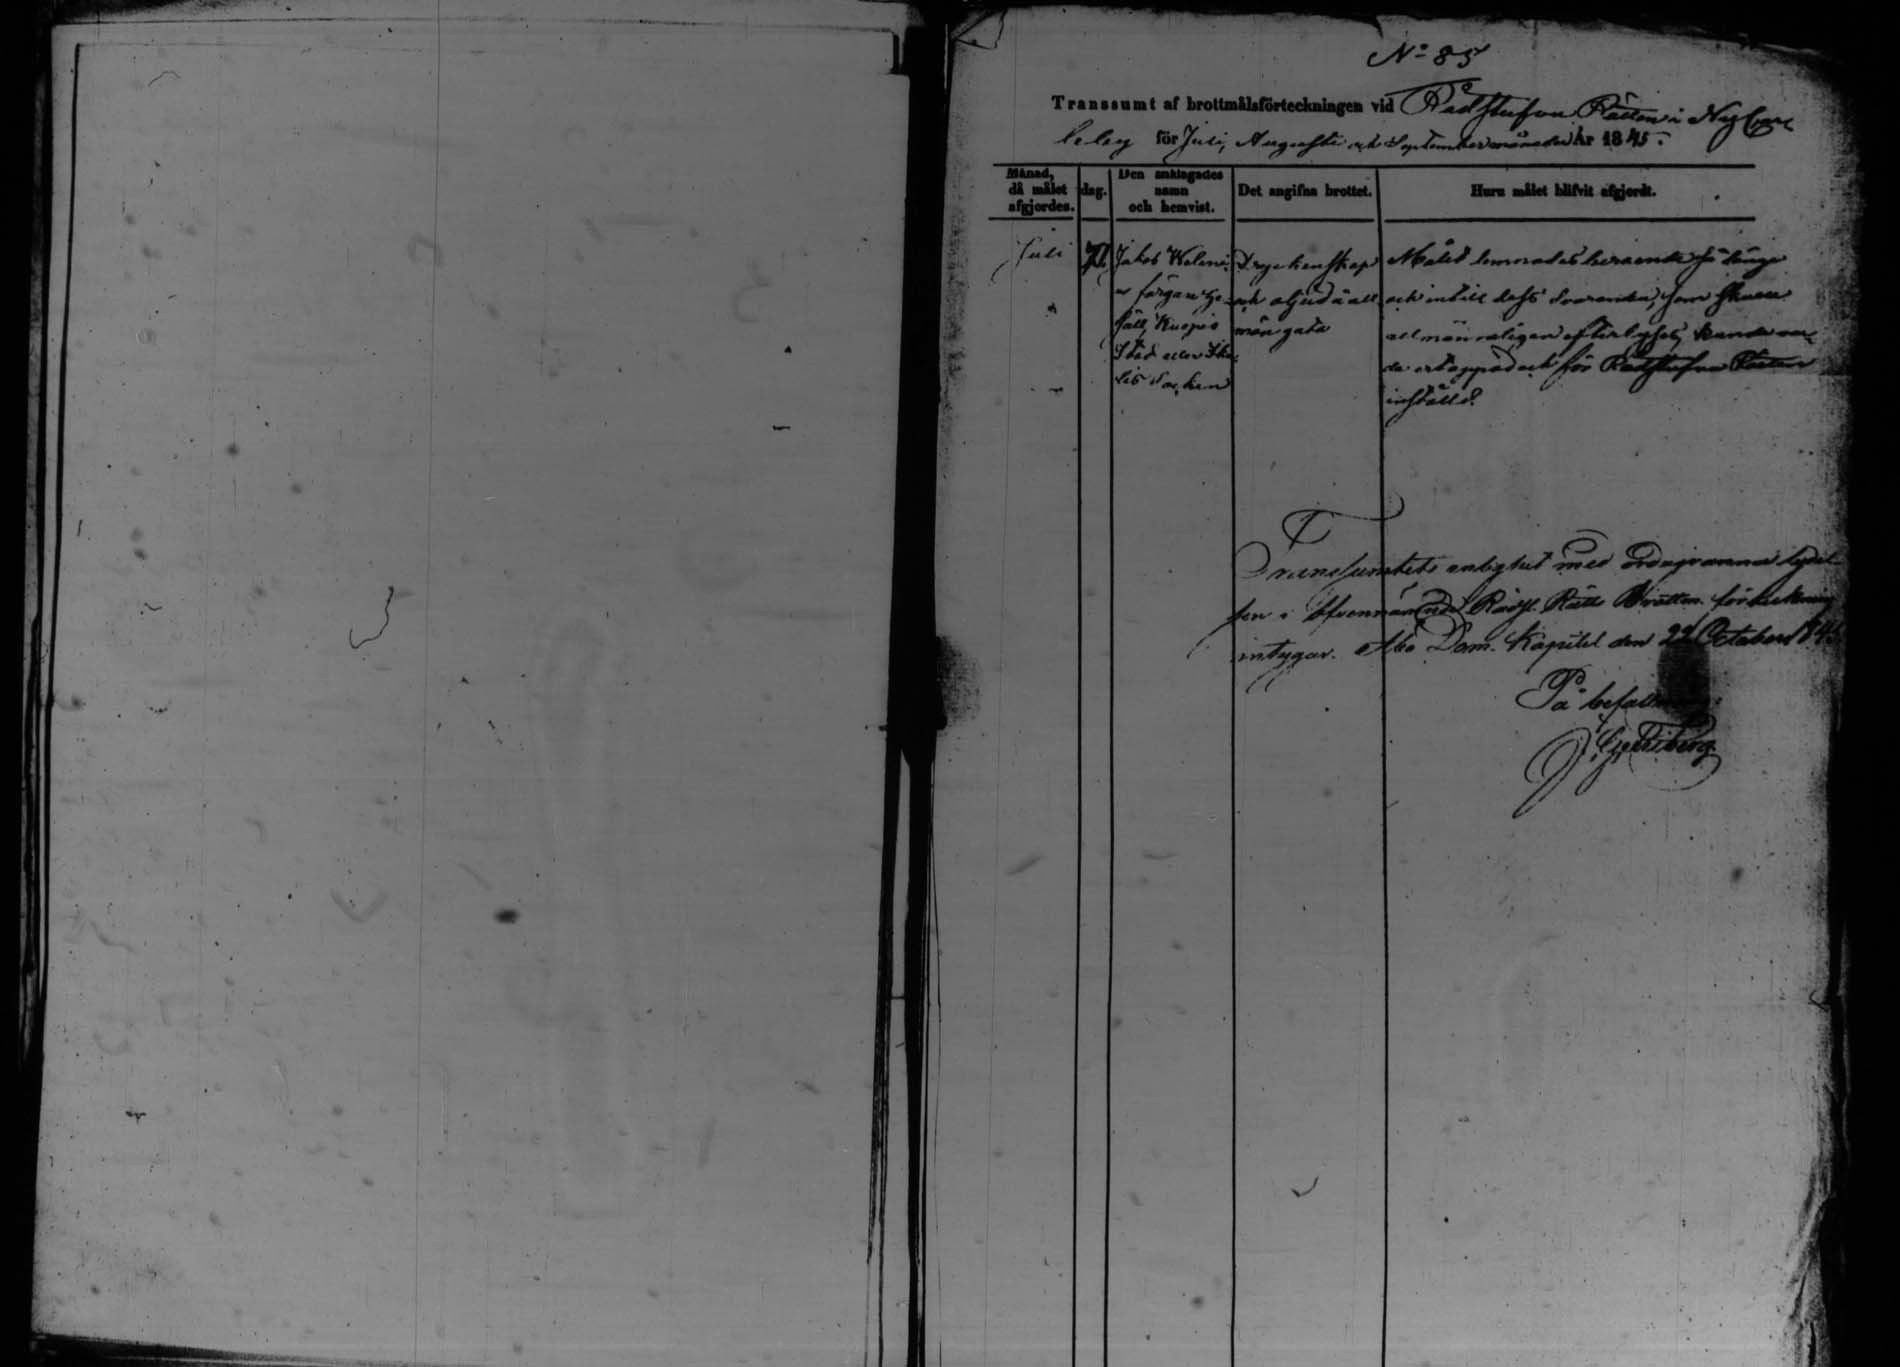 No 85
Transsumt af brottmålsförteckningen vid Rådstufvu Rätten i Ny Carl
leby för Juli, Augusti och September månader År 1845.
Månad, då målet afgjordes.
dag.
Den anklagades namn och hemvist.
Det angifna brottet.
Huru målet blifvit afgjordt.
Juli
Jakob
Kuopio
Stad eller
lis Socken
Dryckenskap
och oljud å all
män gata
Målet lemnades beroende så länge
och intill dess Svaranden, som skulle
allmänneligen efterlysas, kunde var
da ertappad och för Rådstufvu Rätten
inställd.
Transsumtets enlighet med ordagranna lydel
sen i Ofvannämnde Rådst. Rätts Brottm. förteckning
intygar. Åbo Dom. Kapitel den 22 October 1845
På befallning: